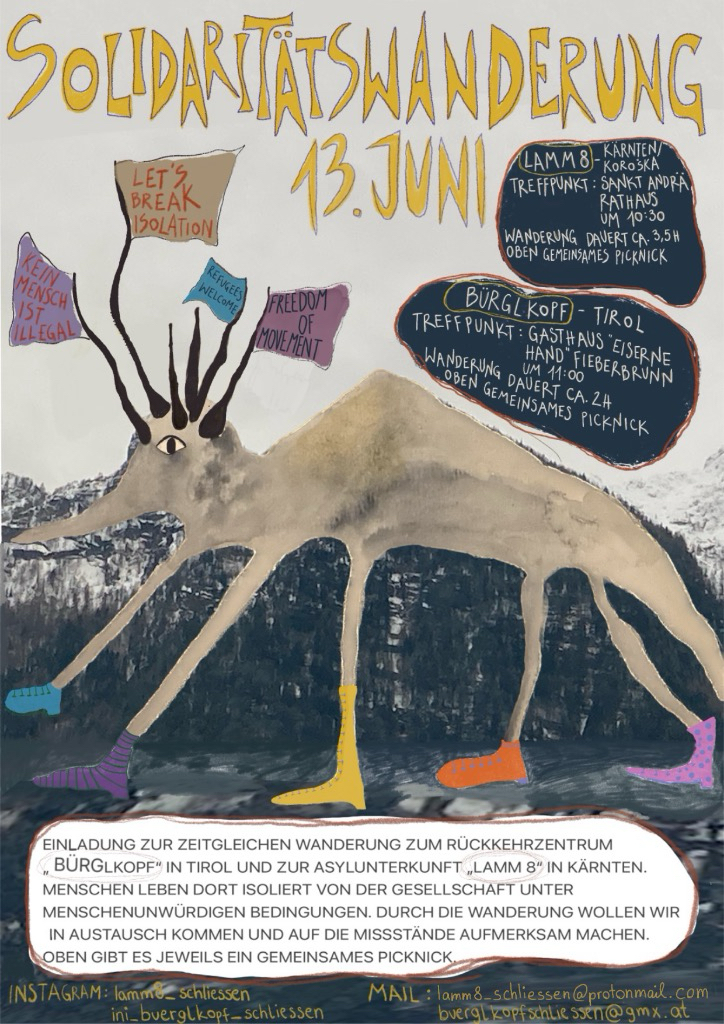 SOLIDARITÄTSWANDERUNG
13. JUNI
LAMM8 - KÄRNTEN/
KOROŠKA
TREFFPUNKT: SANKT ANDRÄ
RATHAUS
UM 10:30
WANDERUNG DAUERT CA. 3,5H
OBEN GEMEINSAMES PICKNICK
LET'S
BREAK
ISOLATION
KEIN
MENSCH
IST
ILLEGAL
REFUGEES
WELCOME
FREEDOM
OF
MOVEMENT
BÜRGLKOPF - TIROL
TREFFPUNKT: GASTHAUS "EISERNE
HAND" FIEBERBRUNN
UM 11:00
WANDERUNG DAUERT CA. 2H
OBEN GEMEINSAMES PICKNICK
EINLADUNG ZUR ZEITGLEICHEN WANDERUNG ZUM RÜCKKEHRZENTRUM
„BÜRGLKOPF" IN TIROL UND ZUR ASYLUNTERKUNFT „LAMM 8" IN KÄRNTEN.
MENSCHEN LEBEN DORT ISOLIERT VON DER GESELLSCHAFT UNTER
MENSCHENUNWÜRDIGEN BEDINGUNGEN. DURCH DIE WANDERUNG WOLLEN WIR
IN AUSTAUSCH KOMMEN UND AUF DIE MISSSTÄNDE AUFMERKSAM MACHEN.
OBEN GIBT ES JEWEILS EIN GEMEINSAMES PICKNICK.
INSTAGRAM: lamm8_schliessen
ini_buerglkopf_schliessen
MAIL: lamm8_schliessen@protonmail.com
buerglkopfschliessen@gmx.at